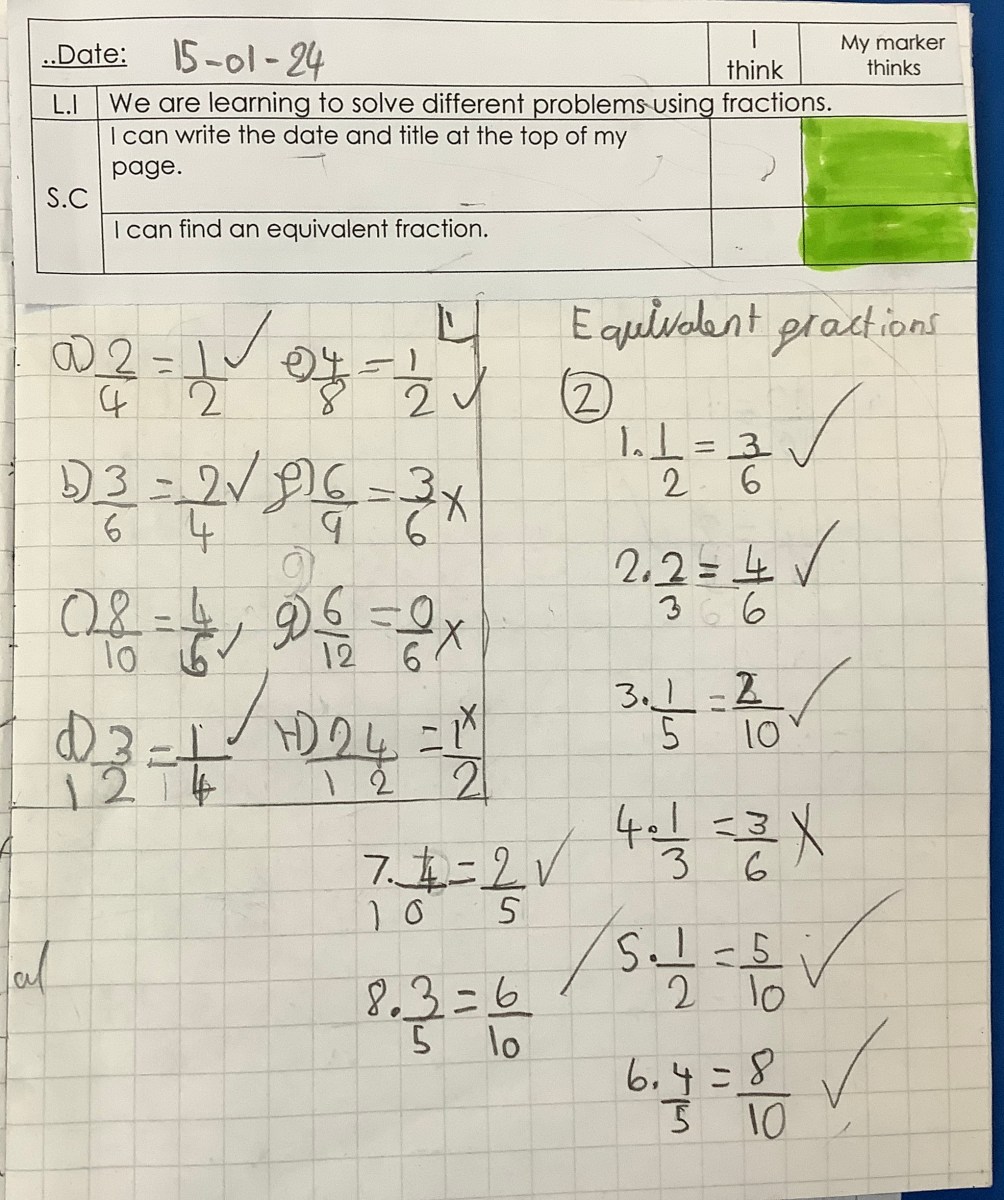 ..Date: 15-01-24
I think
My marker thinks
L.I We are learning to solve different problems using fractions.
S.C
I can write the date and title at the top of my
page.
I can find an equivalent fraction.
Equivalent fractions
a) 2/4 = 1/2 ✓
b) 3/6 = 2/4 ✓
c) 8/10 = 4/5 ✓
d) 3/12 = 1/4 ✓
e) 4/8 = 1/2 ✓
f) 6/9 = 3/6 x
g) 6/12 = 0/6 x
H) 24/12 = 1/2 x
②
1. 1/2 = 3/6 ✓
2. 2/3 = 4/6 ✓
3. 1/5 = 2/10 ✓
4. 1/3 = 3/6 X
5. 1/2 = 5/10 ✓
6. 4/5 = 8/10 ✓
7. 4/10 = 2/5 ✓
8. 3/5 = 6/10 /